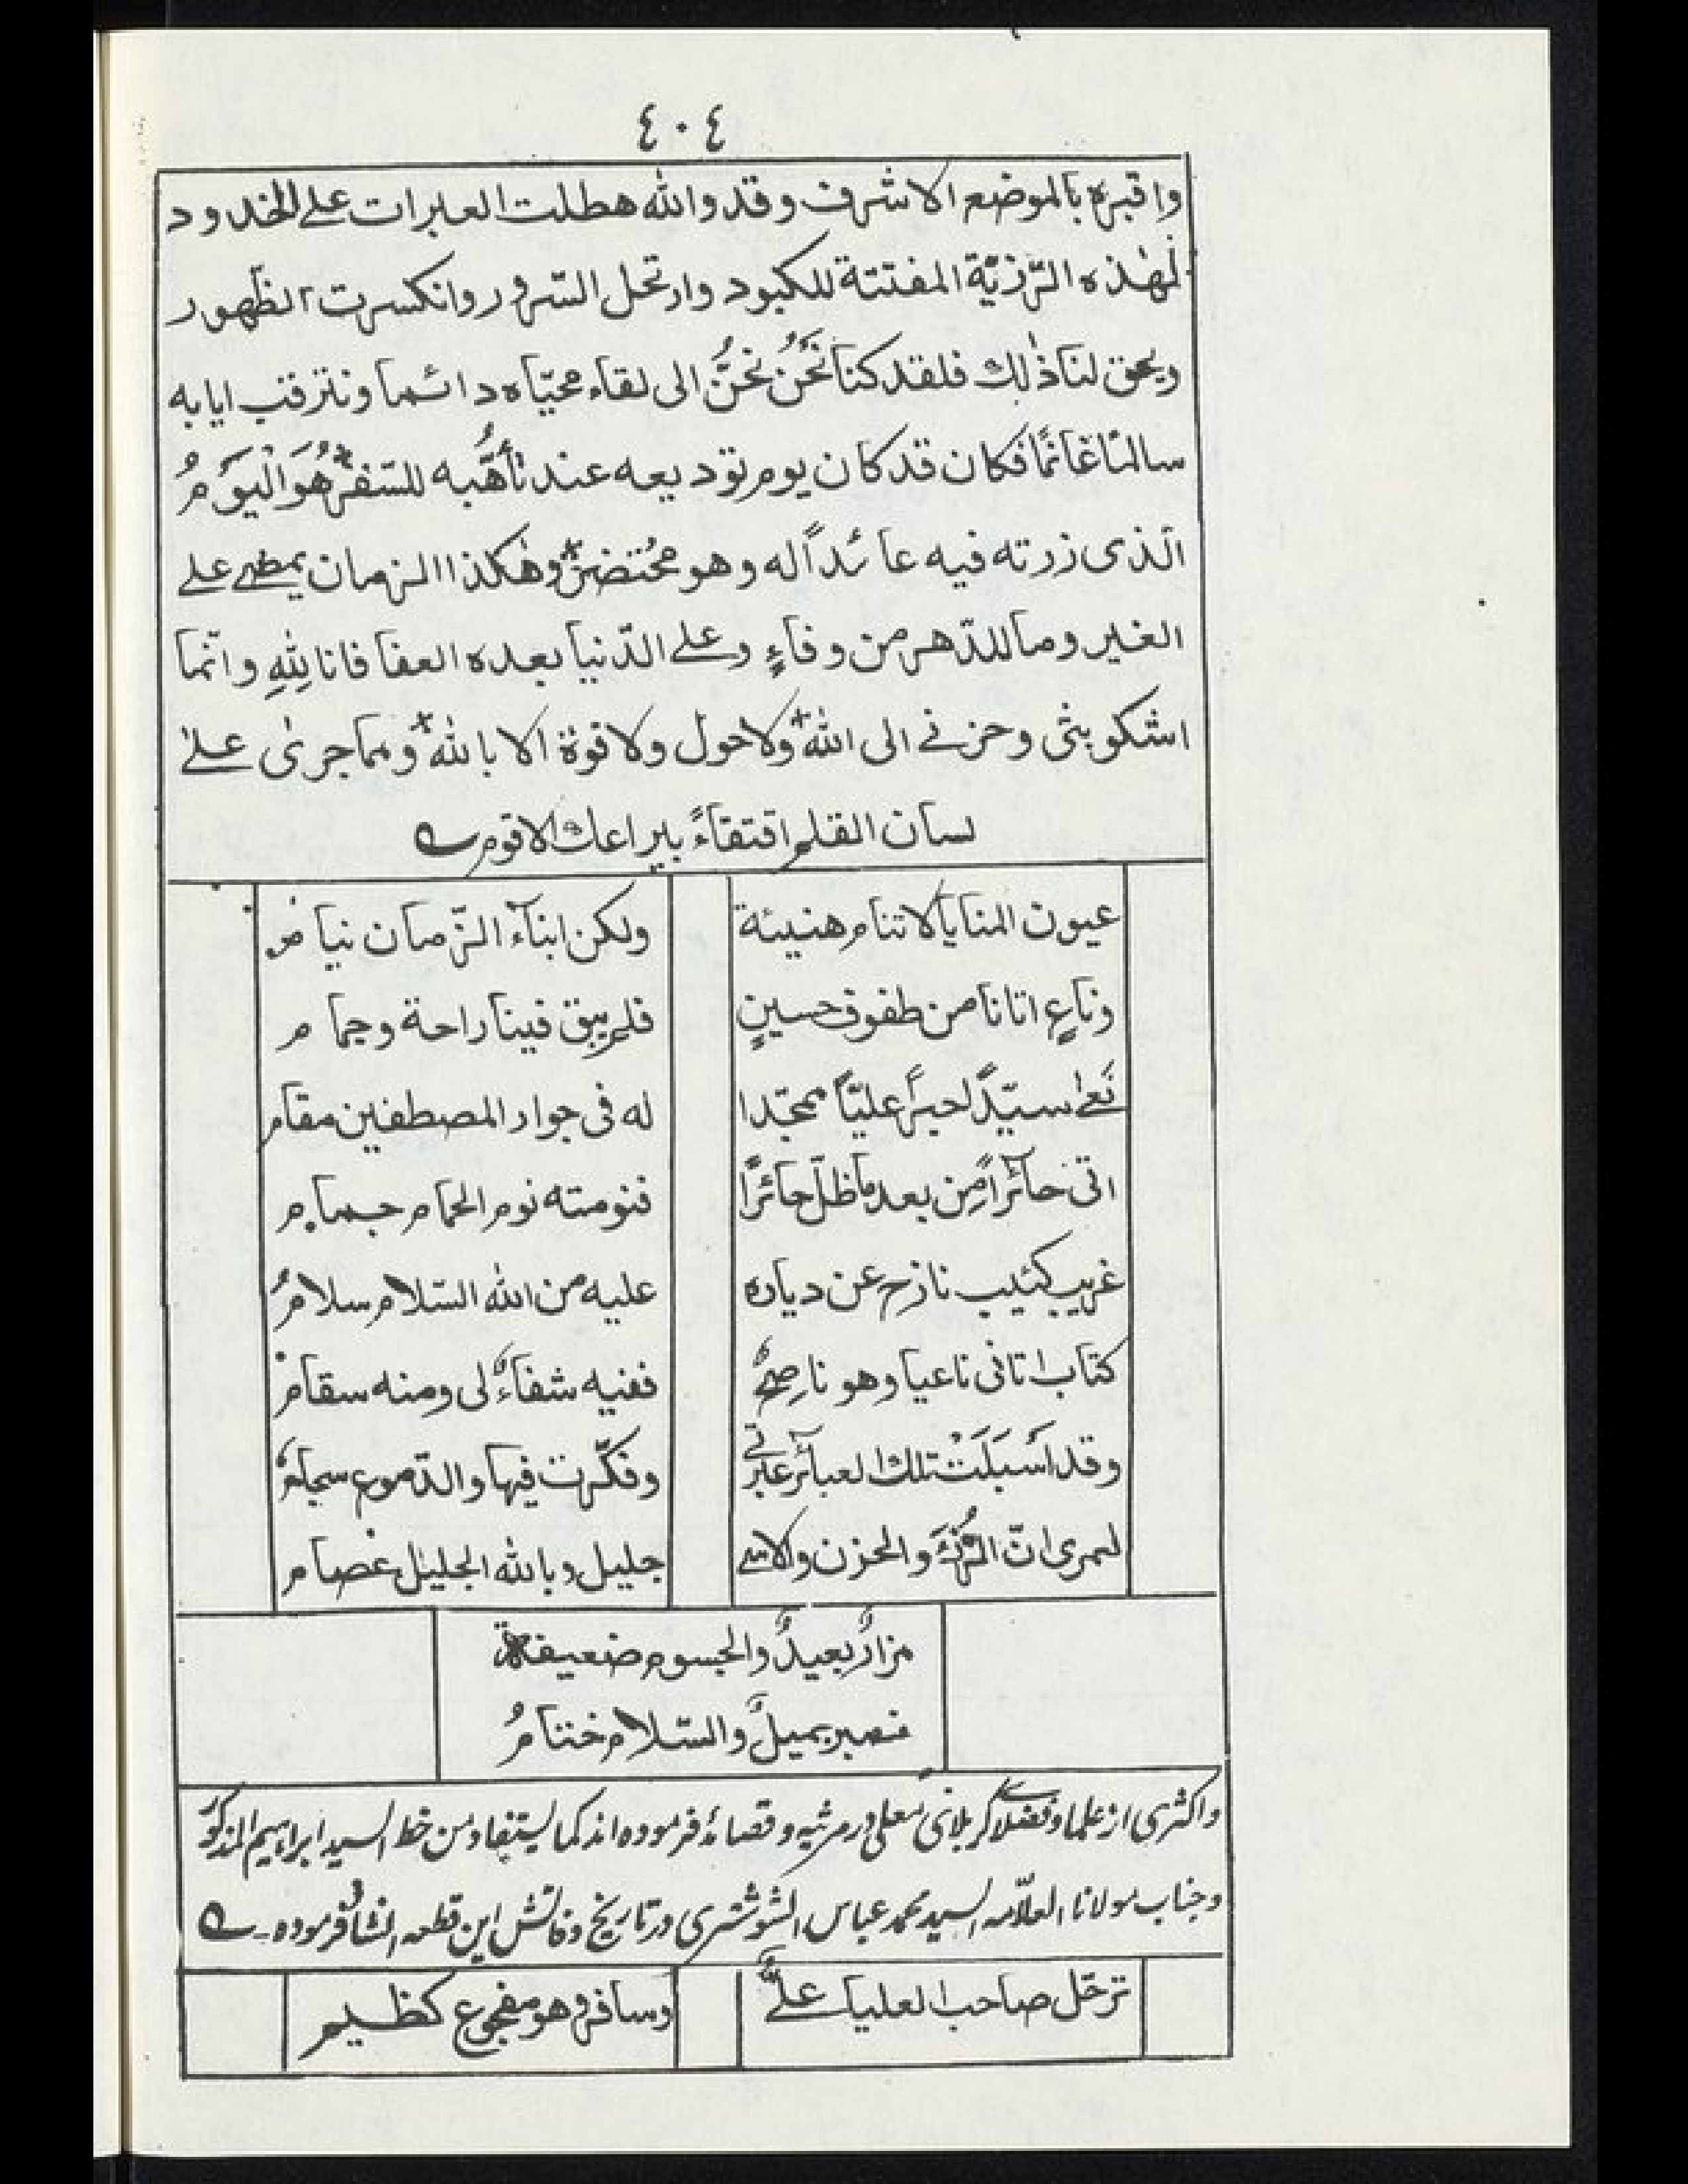 ٤٠٤
واقبره بالموضع الاشرف وقد والله هطلت العبرات على الخدود
لهٰذه الرّزيّة المفتتة للكبود وارتحل السّرور وانكسرت الظّهور
ويحق لنا ذٰلك فلقد كنا نَحْنُ نَحُنُّ الى لقاء محيّاه دائما ونترقب ايابه
سالمًا غانمًا فكان قد كان يوم توديعه عند تأهُّبه للسّفر هُوَ الْيَوْمُ
الّذى زرته فيه عائداً له وهو محُتضرٌ وهٰكذا الزمان يمضے علے
الغير وما للدّهر من وفاءٍ وعلے الدّنيا بعده العفا فانا لِلّٰهِ وانّما
اشكو بثى وحزنے الى الله ولا حول ولا قوة الا بالله ومما جرىٰ علےٰ
لسان القلم اقتفاءً بيراعك الاقوم
عيون المنايا لا تنام هنيئة ولكن ابناءُ الزّمان نيام
وناعٍ اتانا من طفوف حسينٍ فلم يبق فينا راحة وجمام
نَعےٰ سيّدًا حبرًا عليّاً ممجّدا له فى جوار المصطفين مقام
اتى حائرًا مِن بعد ما ظلّ حائرًا فنومته نوم الحمام حسام
غريب كئيب نازح عن دياره عليه من الله السّلام سلامُ
كتاب اتانى ناعيا وهو ناصِحٌ ففيه شفاءٌ لى ومنه سقام
وقد اَسْبَلَتْ تلك العبائر عبرتى وفكّرت فيها والدّموع سجامٌ
لعمرى انّ الرُّزْءَ والحزن والاسے جليل وبالله الجليل عصام
مزارٌ بعيدٌ والجسوم ضعيفة
فصبر جميلٌ والسّلام ختامُ
واكثرى از علما وفضلاے كربلائ معلى در مرثيه وقصائد فرموده اند كما يستفاد من خط السيد ابراهيم المذكور
وجناب مولانا العلّامه السيد محمد عباس الشوشترى در تاريخ وفاتش اين قطعه انشا فرموده
ترحّل صاحب العلياء علےٌّ وسافر وهو مفجوع كظيم